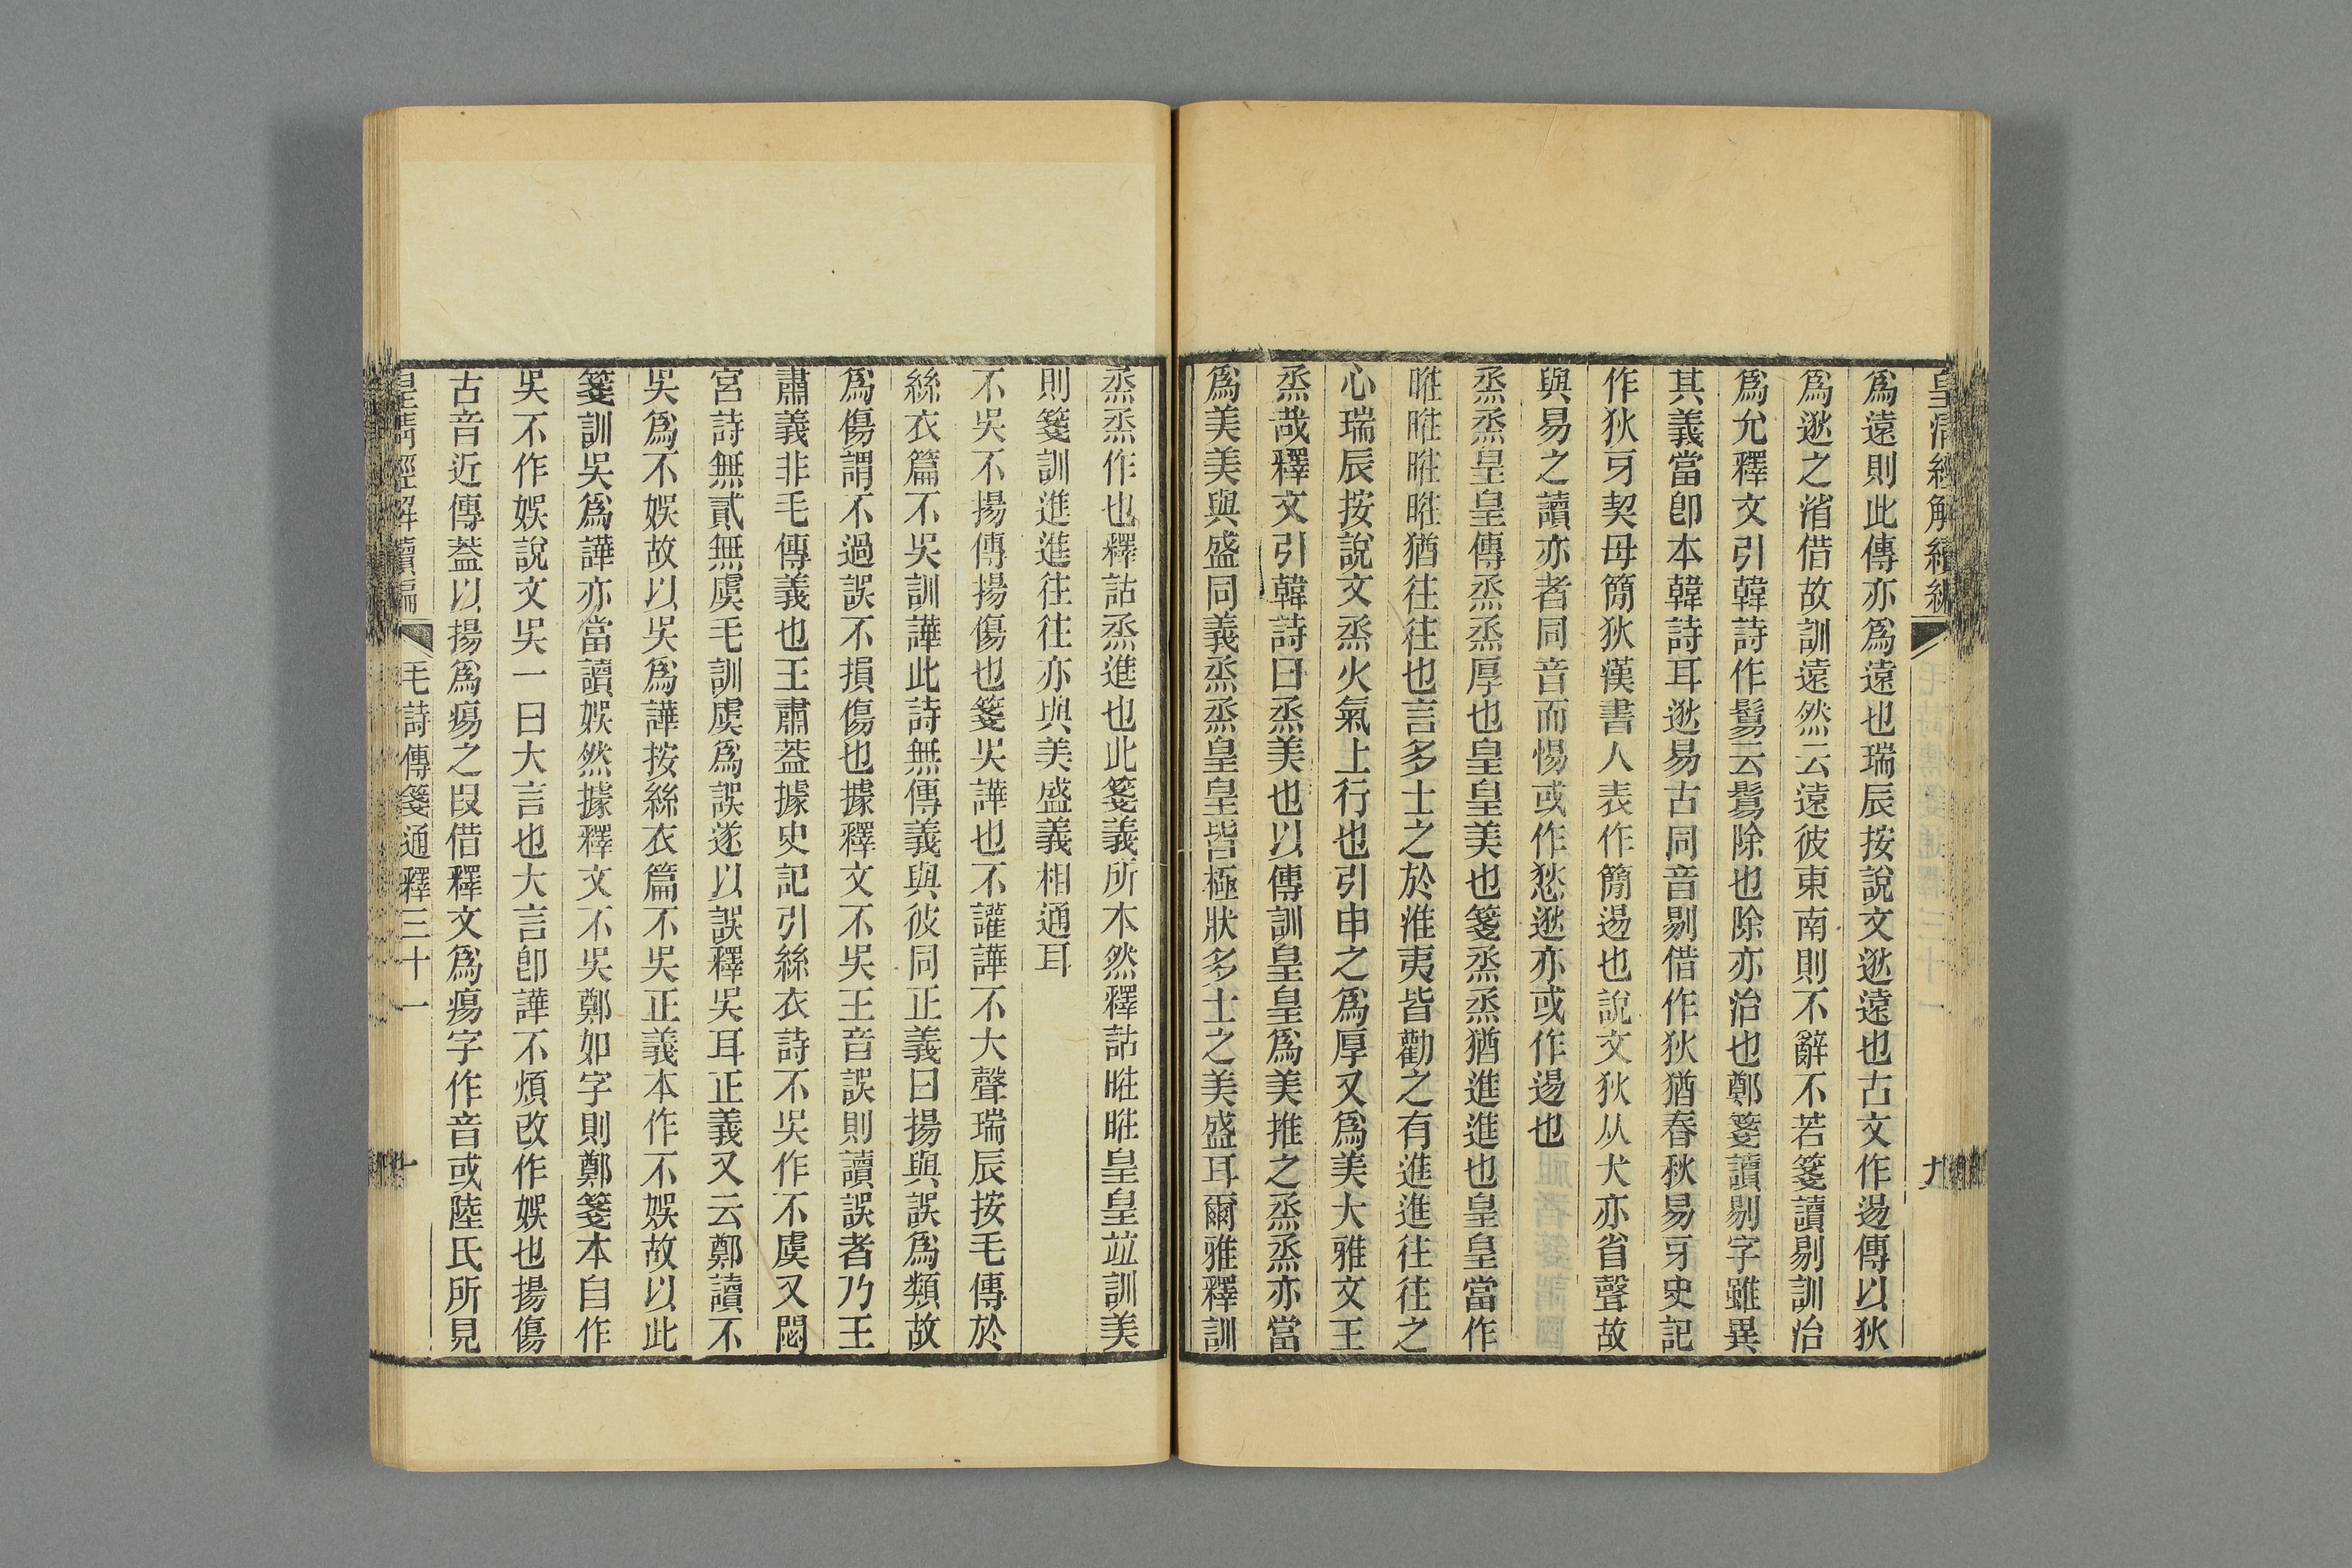 皇清經解續編
九
爲遠則此傳亦爲遠也瑞辰按說文逖遠也古文作逷傳以狄
爲逖之渻借故訓遠然云遠彼東南則不辭不若箋讀剔訓治
爲允釋文引韓詩作鬄云鬄除也除亦治也鄭箋讀剔字雖異
其義當卽本韓詩耳逖易古同音剔借作狄猶春秋易牙史記
作狄牙契母簡狄漢書人表作簡逷也說文狄从犬亦省聲故
與易之讀亦者同音而惕或作愁逖亦或作逷也
烝烝皇皇傳烝烝厚也皇皇美也箋烝烝猶進進也皇皇當作
暀暀暀暀猶往往也言多士之於淮夷皆勸之有進進往往之
心瑞辰按說文烝火氣上行也引申之爲厚又爲美大雅文王
烝哉釋文引韓詩曰烝美也以傳訓皇皇爲美推之烝烝亦當
爲美美與盛同義烝烝皇皇皆極狀多士之美盛耳爾雅釋訓
烝烝作也釋詁烝進也此箋義所本然釋詁暀暀皇皇竝訓美
則箋訓進進往往亦與美盛義相通耳
不吳不揚傳揚傷也箋吳譁也不讙譁不大聲瑞辰按毛傳於
絲衣篇不吳訓譁此詩無傳義與彼同正義曰揚與誤爲類故
爲傷謂不過誤不損傷也據釋文不吳王音誤則讀誤者乃王
肅義非毛傳義也王肅葢據史記引絲衣詩不吳作不虞又閟
宮詩無貳無虞毛訓虞爲誤遂以誤釋吳耳正義又云鄭讀不
吳爲不娛故以吳爲譁按絲衣篇不吳正義本作不娛故以此
箋訓吳爲譁亦當讀娛然據釋文不吳鄭如字則鄭箋本自作
吳不作娛說文吳一曰大言也大言卽譁不煩改作娛也揚傷
古音近傳葢以揚爲瘍之叚借釋文爲瘍字作音或陸氏所見
皇清經解續編
毛詩傳箋通釋三十一
十